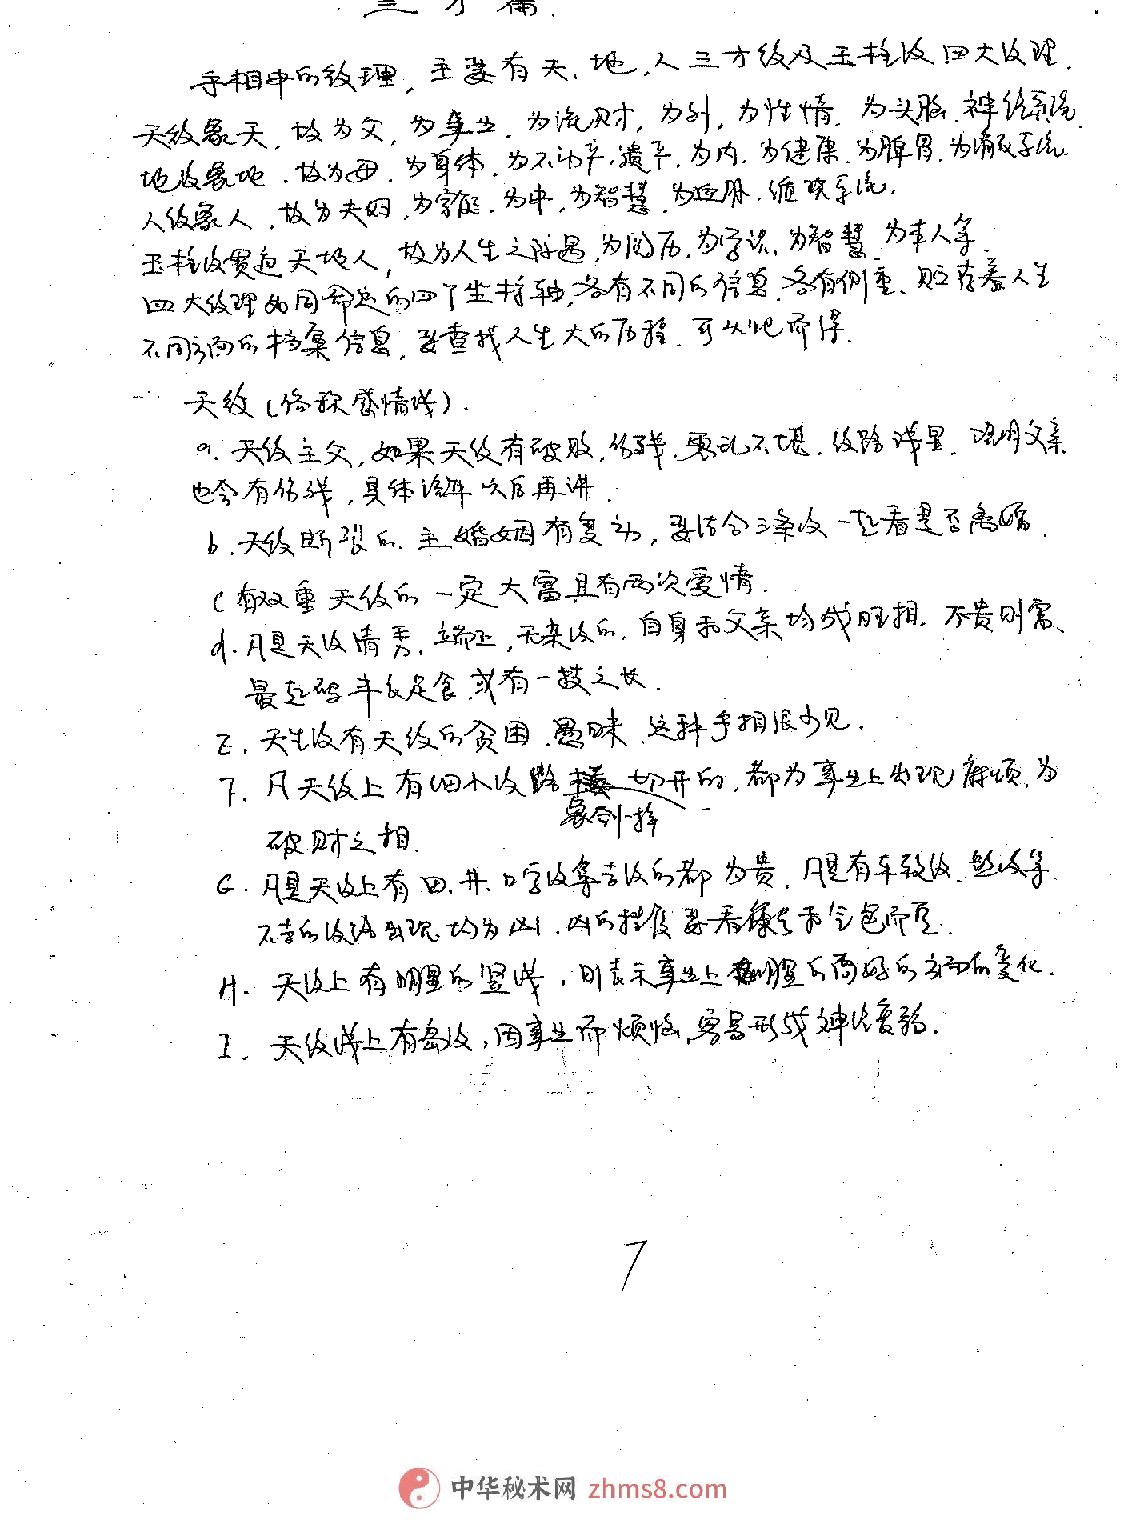 三才篇.
手相中的纹理, 主要有天、地、人三才纹及玉柱纹四大纹理.
天纹象天, 故为父, 为事业, 为流财, 为外, 为性情, 为头脑、神经系统.
地纹象地, 故为母, 为身体, 为不动产、遗产, 为内, 为健康, 为脾胃, 为消化系统
人纹象人, 故为夫妇, 为才能, 为中, 为智慧, 为血脉、循环系统.
玉柱纹贯通天地人, 故为人生之际遇, 为阅历, 为学识, 为智慧, 为本人等.
四大纹理如同命运的四个坐标轴, 各有不同的信息, 各有侧重、贮存着人生
不同方面的档案信息, 要查找人生大的历程, 可从此而得.
天纹(俗称感情线).
a. 天纹主父, 如果天纹有破败, 伤残, 紊乱不堪, 纹路浅显, 说明父亲
也会有伤残, 具体详解以后再讲.
b. 天纹断裂的, 主婚姻有变动, 要结合三条纹一起看是否离婚.
c 有双重天纹的一定大富且有两次爱情.
d. 凡是天纹清秀, 端正, 无杂纹的, 自身和父亲均成旺相, 不贵则富、
最起码丰衣足食, 或有一技之长.
E. 天生没有天纹的贫困、愚昧, 这种手相很少见.
F. 凡天纹上有细小纹路 一切开的, 都为事业上出现麻烦, 为
象剑一样
破财之相.
G. 凡是天纹上有田、井、口字纹等吉纹的都为贵, 凡是有车毂纹、纹等
不吉的纹络出现均为凶, 凶的程度要看气色而定.
H. 天纹上有明显的竖线, 则表示事业上明显的而好的方面的变化.
I. 天纹线上有岛纹, 因事业而烦恼, 容易形成神经衰弱.
7
中华秘术网 zhms8.com